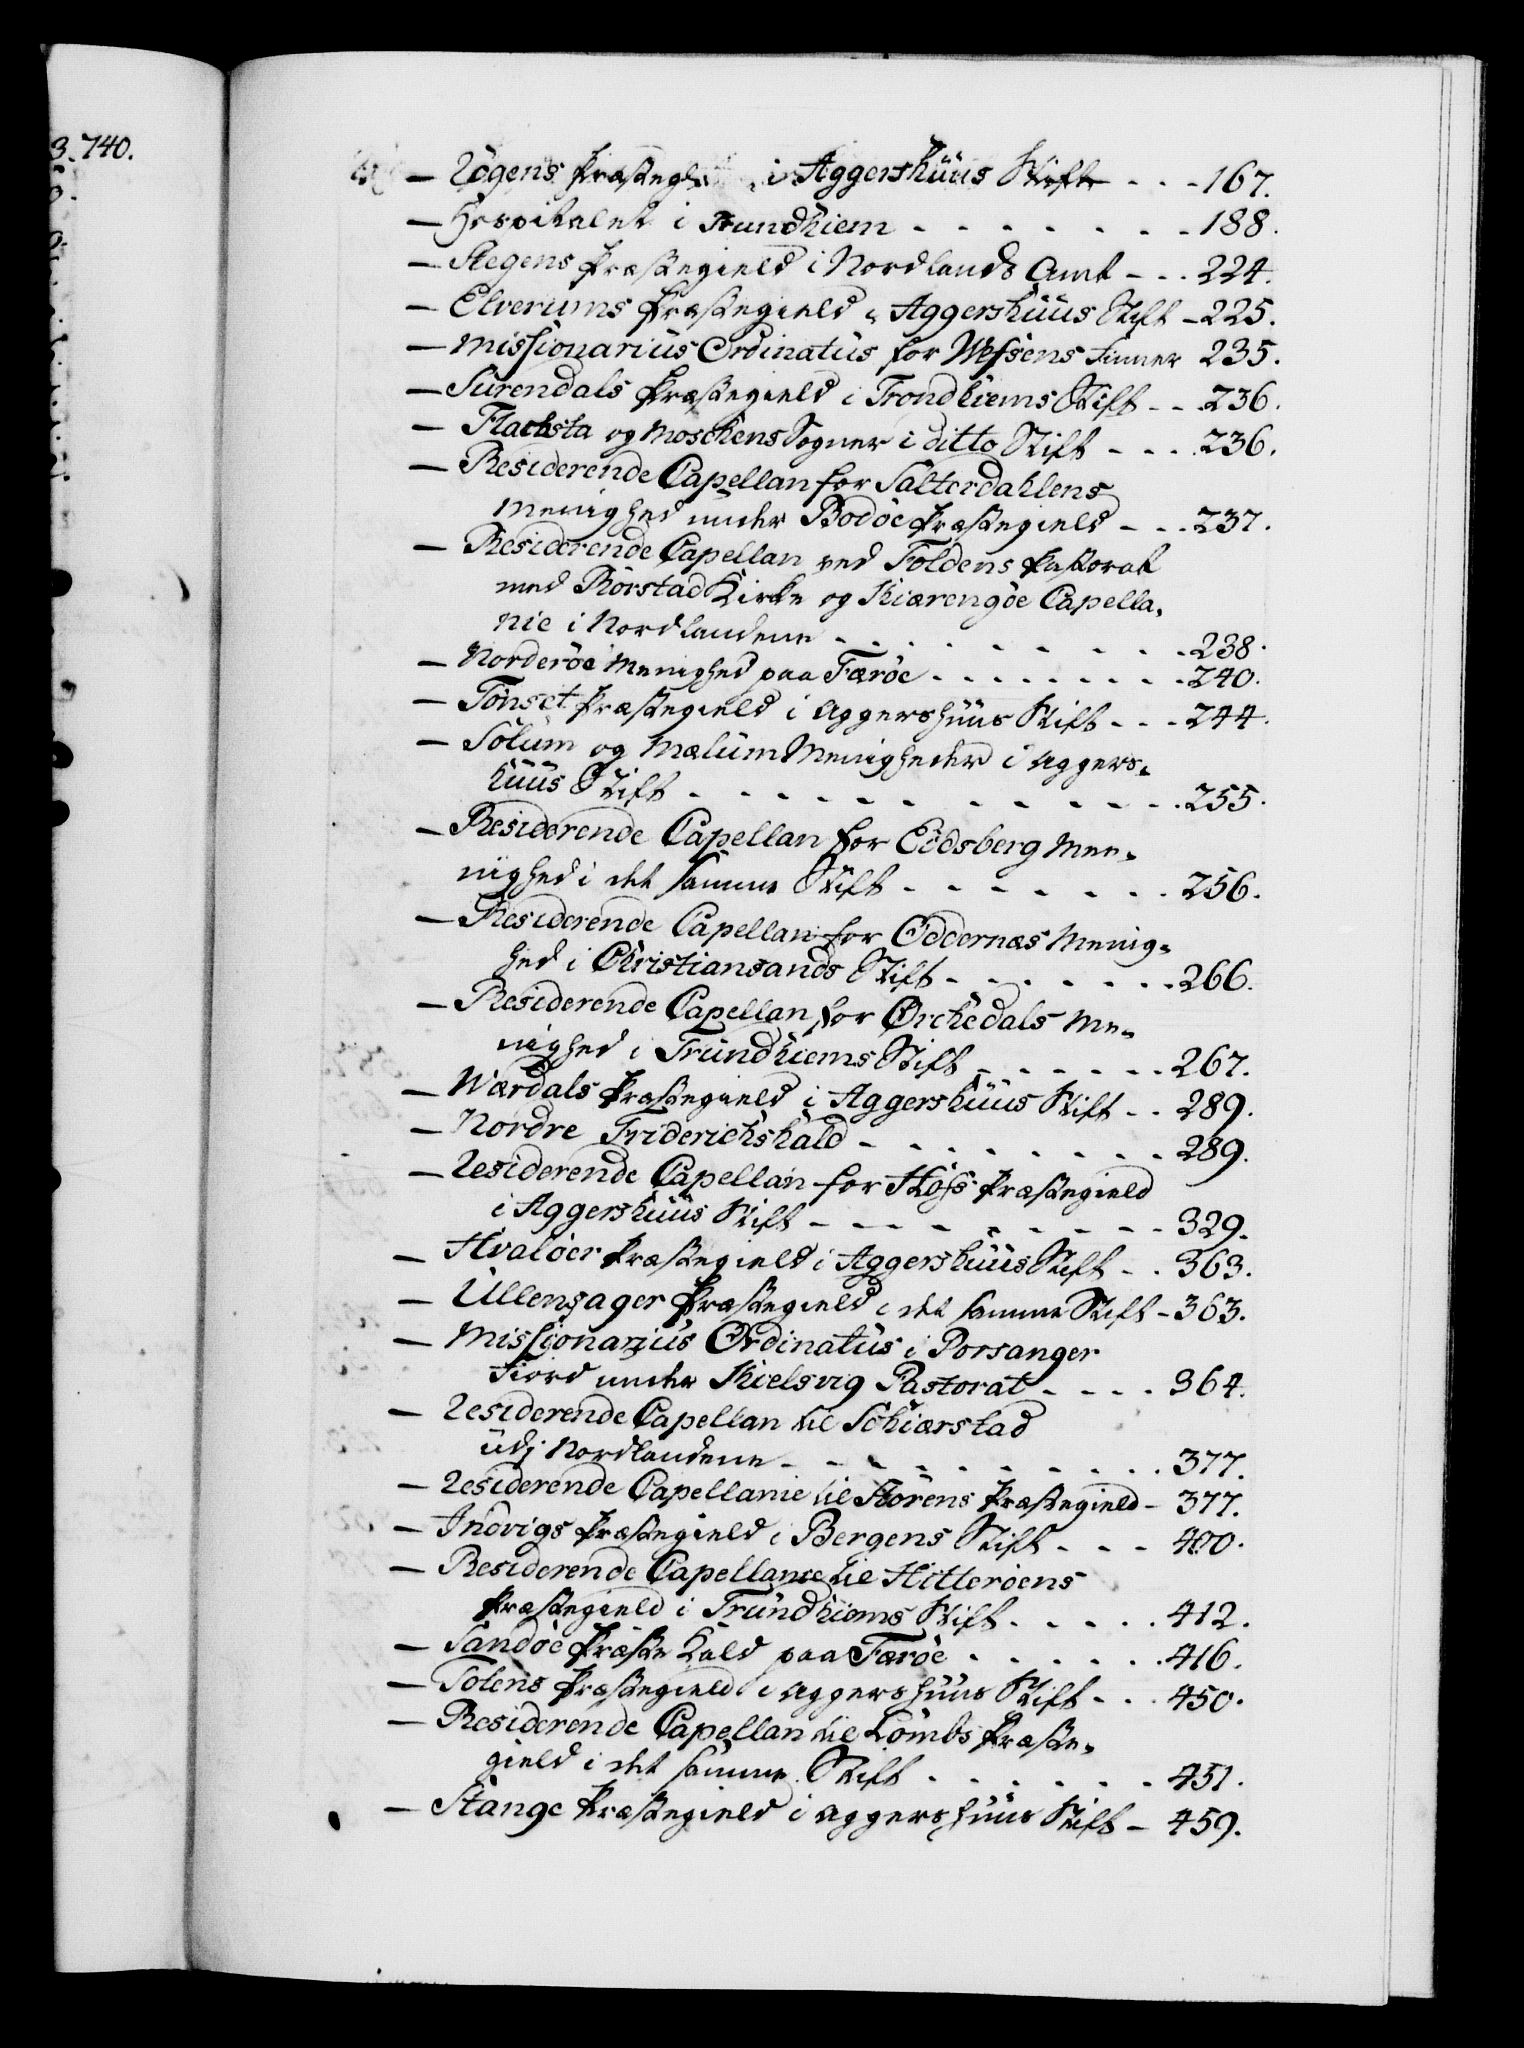 3.740.
— Rögens Præstegield i Aggershuus Stift - - - 167.
— Hospitalet i Trundhiem - - - - - - - 188.
— Stegens Præstegield i Nordlands Amt - - - 224.
— Elverums Præstegield i Aggershuus Stift - 225.
— Missionarius Ordinatus for Wefsens Finner 235.
— Surendals Præstegield i Trondhiems Stift - - 236.
— Flachsta og Moschens Sogner i ditto Stift - - - 236.
— Residerende Capellan for Salterdahlens
Menighed under Bodöe Præstegield - - - 237.
— Residerende Capellan ved Foldens Pastorat
med Rörstad Kirke og Kiærengöe Capella-
nie i Nordlandene - - - - - - - - - 238.
— Norderöe Menighed paa Færöe - - - - - - - - 240.
— Tönset Præstegield i Aggershuus Stift - - - 244.
— Solum og Mælum Menigheder i Aggers-
huus Stift - - - - - - - - - - - 255.
— Residerende Capellan for Eidsberg Mee-
nighed i det samme Stift - - - - - - - 256.
— Residerende Capellan for Oddernæs Menig-
hed i Christiansands Stift - - - - - - - 266.
— Residerende Capellan for Orchedals Me-
nighed i Trundhiems Stift - - - - - - 267.
— Wærdals Præstegield i Aggershuus Stift - - 289.
— Nordre Friderichshald - - - - - - - - 289.
— Residerende Capellan for Hofs Præstegield
i Aggershuus Stift - - - - - - - - - 329.
— Hvalöer Præstegield i Aggershuus Stift - - 363.
— Ullensager Præstegield i det samme Stift - 363.
— Missionarius Ordinatus i Porsanger
Fiord under Kielsvig Pastorat - - - - 364.
— Residerende Capellan til Schiærstad
udj Nordlandene - - - - - - - - - - 377.
— Residerende Capellanie til Störens Præstegield - 377.
— Indvigs Præstegield i Bergens Stift - - - 400.
— Residerende Capellanie til Hitteröens
Præstegield i Trundhiems Stift - - - - - 412.
— Sandöe Præste Kald paa Færöe - - - - - - 416.
— Totens Præstegield i Aggershuus Stift - - - 450.
— Residerende Capellan til Lombs Præste-
gield i det samme Stift - - - - - - 451.
— Stange Præstegield i Aggershuus Stift - 459.